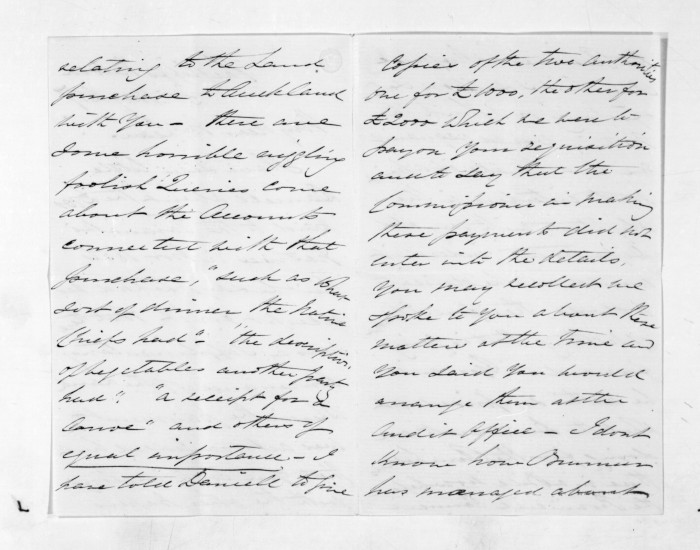 relating to the Land
purchase to Auckland
with You – there are
some horrible niggling
foolish Queries come
about the Accounts
connected with that
purchase, "such as what
sort of dinner the Native
Chiefs had" – "the description
of vegetables another party
had". "a receipt for a
Canoe" and others of
equal importance – I
have told Daniell to give
Copies of the two authorities
one for £1000, the other for
£2000 which we were to
pay on Your requisition
and to say that the
Commissioner in making
these payments did not
enter into the details,
You may recollect we
spoke to You about these
matters at the time and
You said You would
arrange them at the
Audit Office – I dont
know how
has managed about